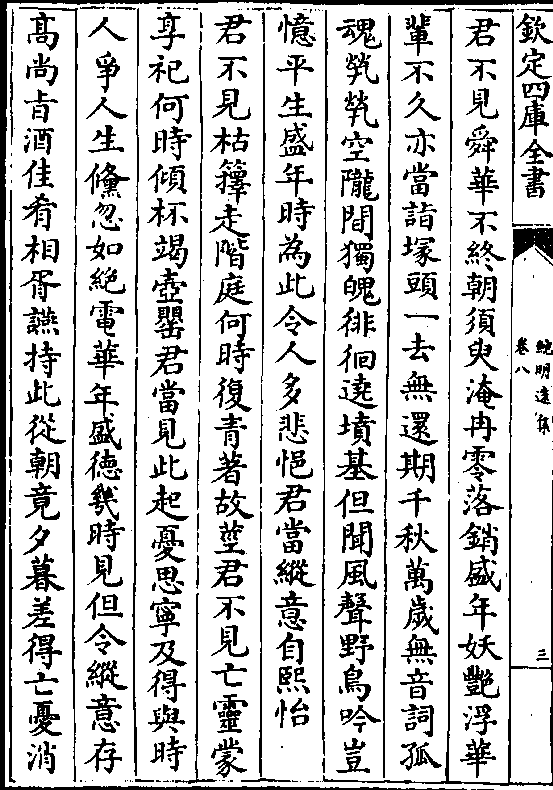 欽定四庫全書
鮑明逺集
卷八
三
君不見舜華不終朝須臾淹冉零落銷盛年妖艷浮華
輩不久亦當詣塚頭一去無還期千秋萬歲無音詞孤
魂煢煢空隴間獨魄徘徊遶墳基但聞風聲野鳥吟豈
憶平生盛年時為此令人多悲悒君當縱意自熙怡
君不見枯籜走階庭何時復青著故莖君不見亡靈蒙
享祀何時傾杯竭壺罌君當見此起憂思寧及得與時
人爭人生儵忽如絶電華年盛徳幾時見但令縱意存
髙尚㫖酒佳肴相胥讌持此從朝竟夕暮差得亡憂消